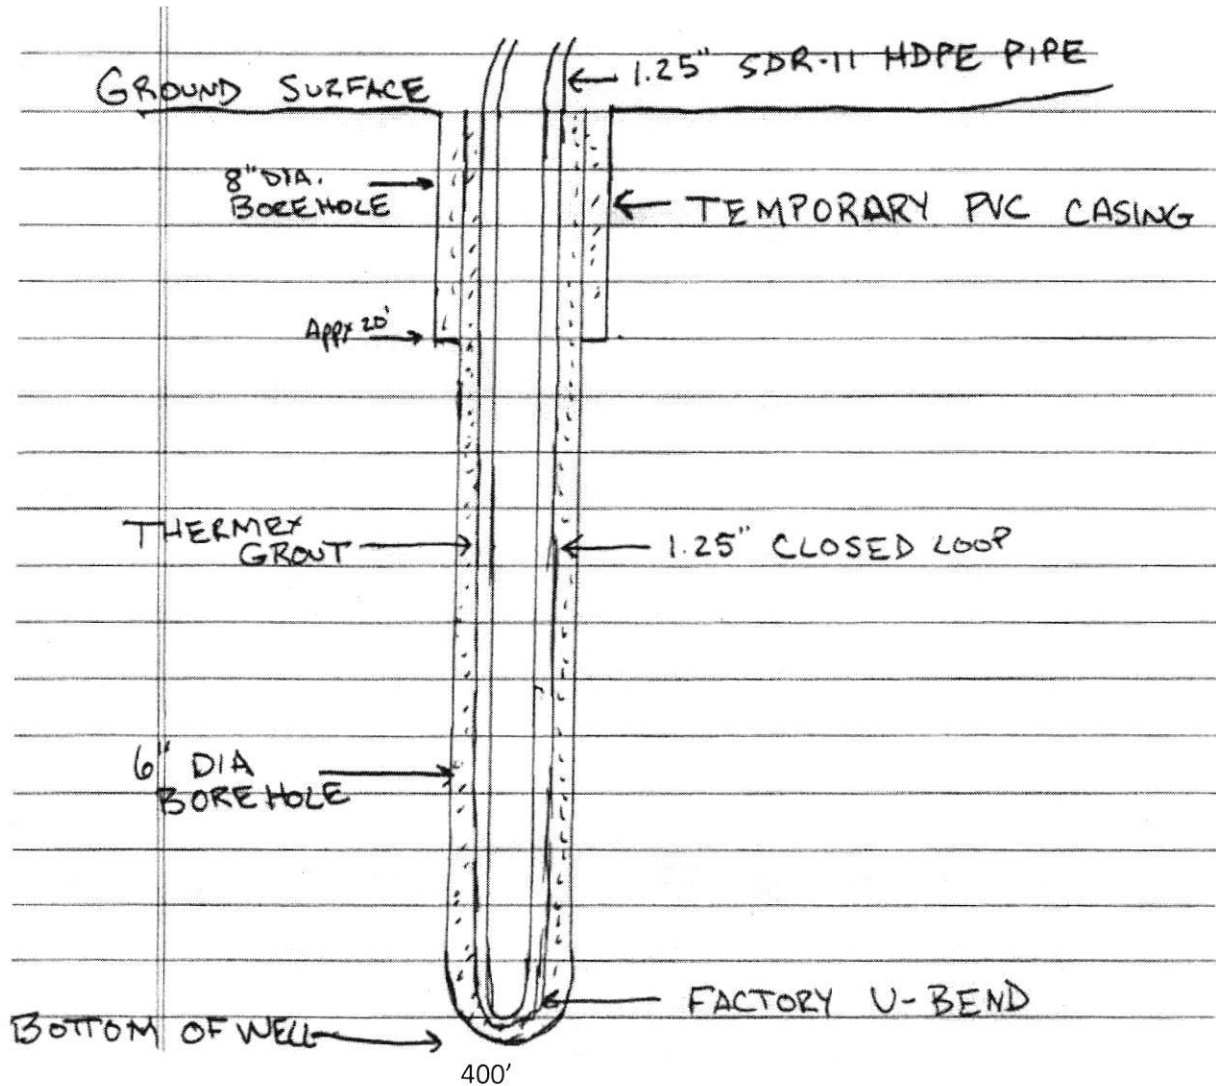 1.25" SDR-11 HDPE PIPE
GROUND SURFACE
8" DIA.
BOREHOLE
TEMPORARY PVC CASING
Appx 20'
THERMEX
GROUT
1.25" CLOSED LOOP
6" DIA
BOREHOLE
FACTORY U-BEND
BOTTOM OF WELL
400'